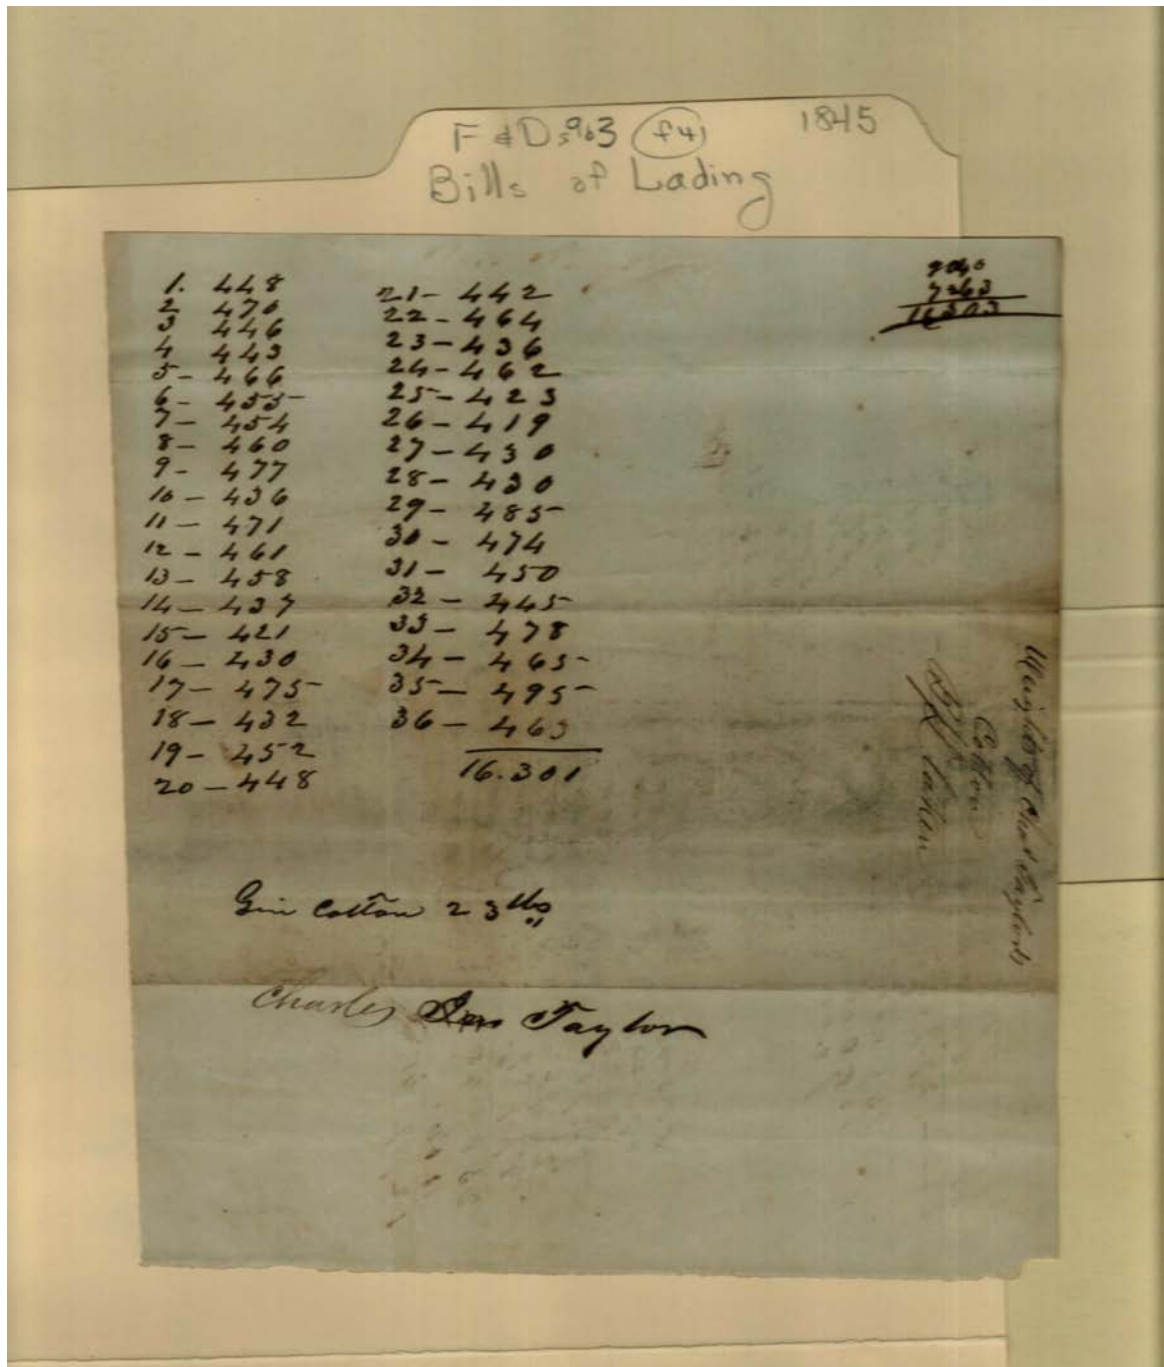 F & D 963 (f41) 1845
Bills of Lading
1. 448
2 470
3 446
4 443
5- 466
6- 455-
7- 454
8- 460
9- 477
10- 436
11- 471
12- 461
13- 458
14- 437
15- 421
16- 430
17- 475-
18- 432
19- 452
20- 448
21- 442
22- 464
23- 436
24- 462
25- 423
26- 419
27- 430
28- 430
29- 485-
30- 474
31- 450
32- 445-
33- 478
34- 465-
35- 495-
36- 463
16.301
9040
7263
16303
Gin Cotton 23 lbs
Charles Taylor
Weight of Chas Taylors
Cotton